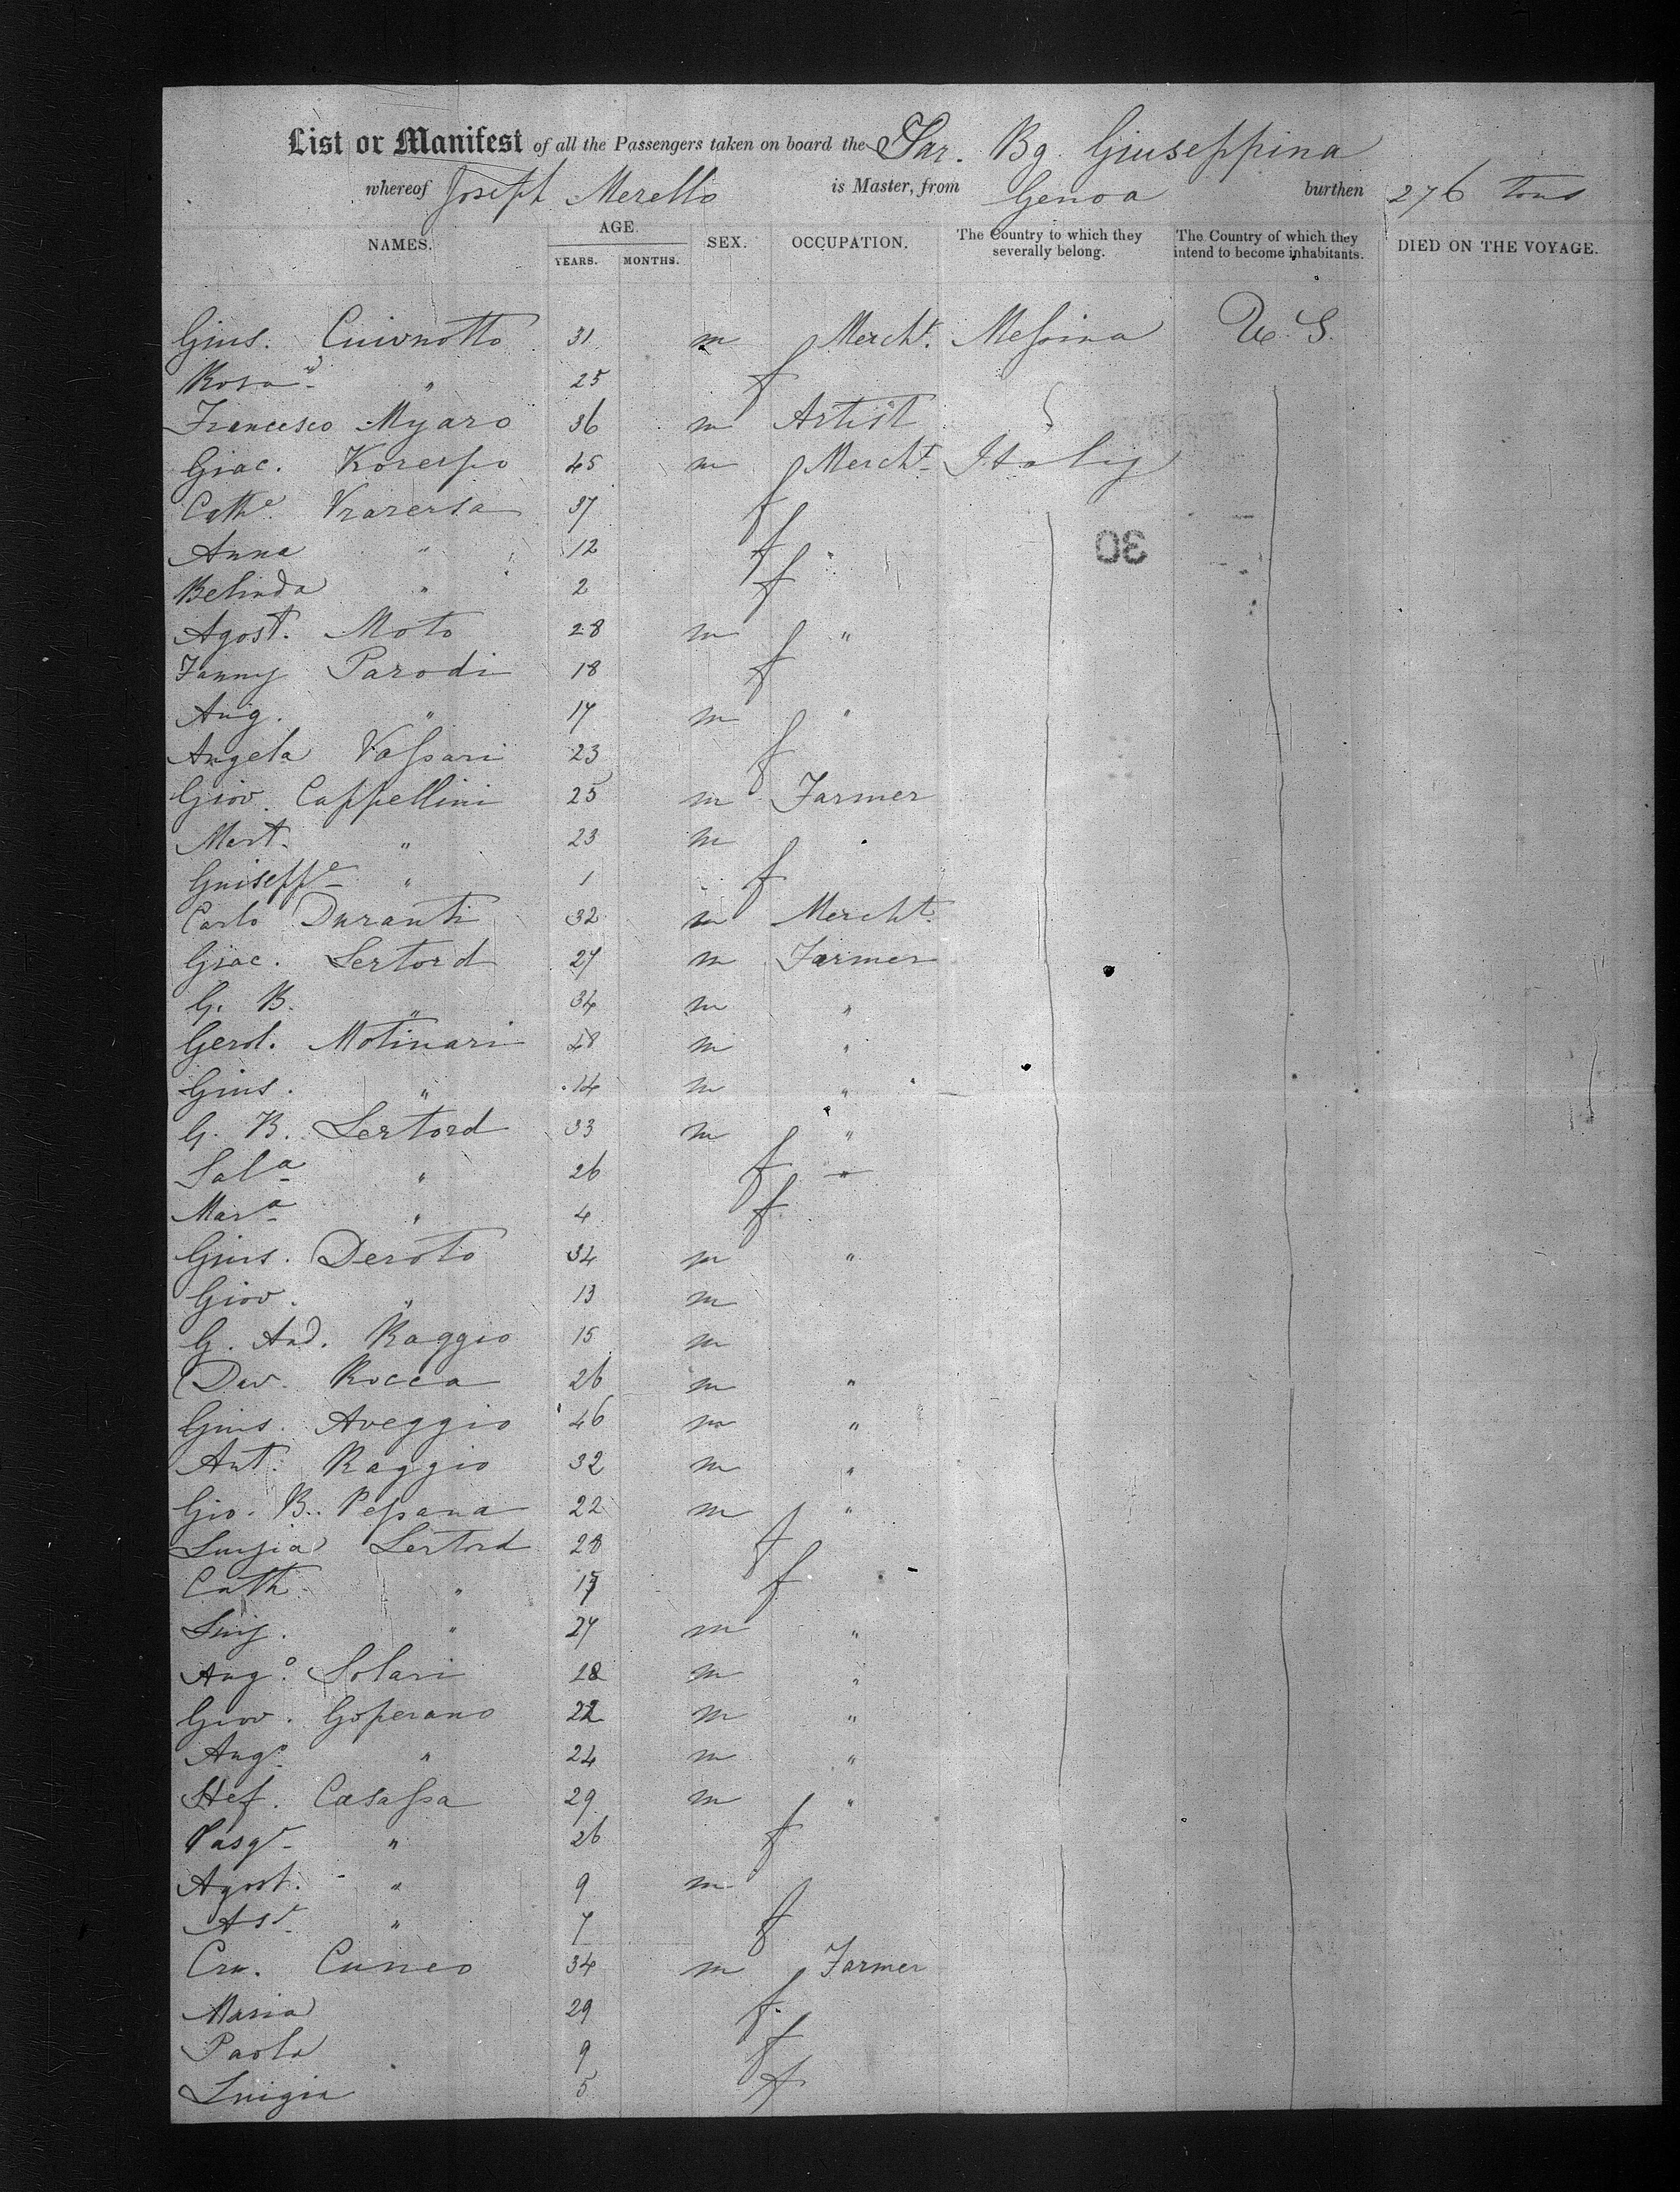 List or Manifest of all the Passengers taken on board the Sar. Bg. Giuseppina
whereof Joseph Merello is Master, from Genoa burthen 276 tons
NAMES. AGE. YEARS. MONTHS. SEX. OCCUPATION. The Country to which they severally belong. The Country of which they intend to become inhabitants. DIED ON THE VOYAGE.
Gius. 31 m Mercht. Messina U. S.
Rosa " 25 f
Francesco Myaro 36 m Artist
Giac. 45 m Mercht. Italy
Cathe. 37 f
Anna " 12 f "
Belinda " 2 f
30
Agost. Moto 28 m "
Fanny Parodi 18 f
Aug. " 17 m "
Angela Vassari 23 f
Giov. Cappellini 25 m Farmer
Mart. " 23 m
Guiseppe " 1 f
Carlo Duranti 32 m Mercht.
Giac. Sertord 27 m Farmer
G. B. " 34 m "
Gerol. Molinari 48 m "
Gius. " 14 m "
G. B. Sertord 33 m "
Sala " 26 f "
Mara " 4 f
Gius. Deroto 34 m "
Giov. " 13 m
G. And. Raggio 15 m
Dav. Rocca 26 m "
Gius. Aveggio 46 m "
Ant. Raggio 32 m "
Gio. B. Pessana 22 m "
Luigia Sertord 28 f
Cath. " f
Luig. " 27 m "
Ango. Solari 18 m "
Giov. Gosperano 22 m "
Ango. " 24 m "
Stef. Casassa 29 m "
Pasqe. " 26 f
Agost. " 9 m
" 7 f
Cuneo 34 m Farmer
Maria 29 f
Paola 9 f
Luigia 5 f